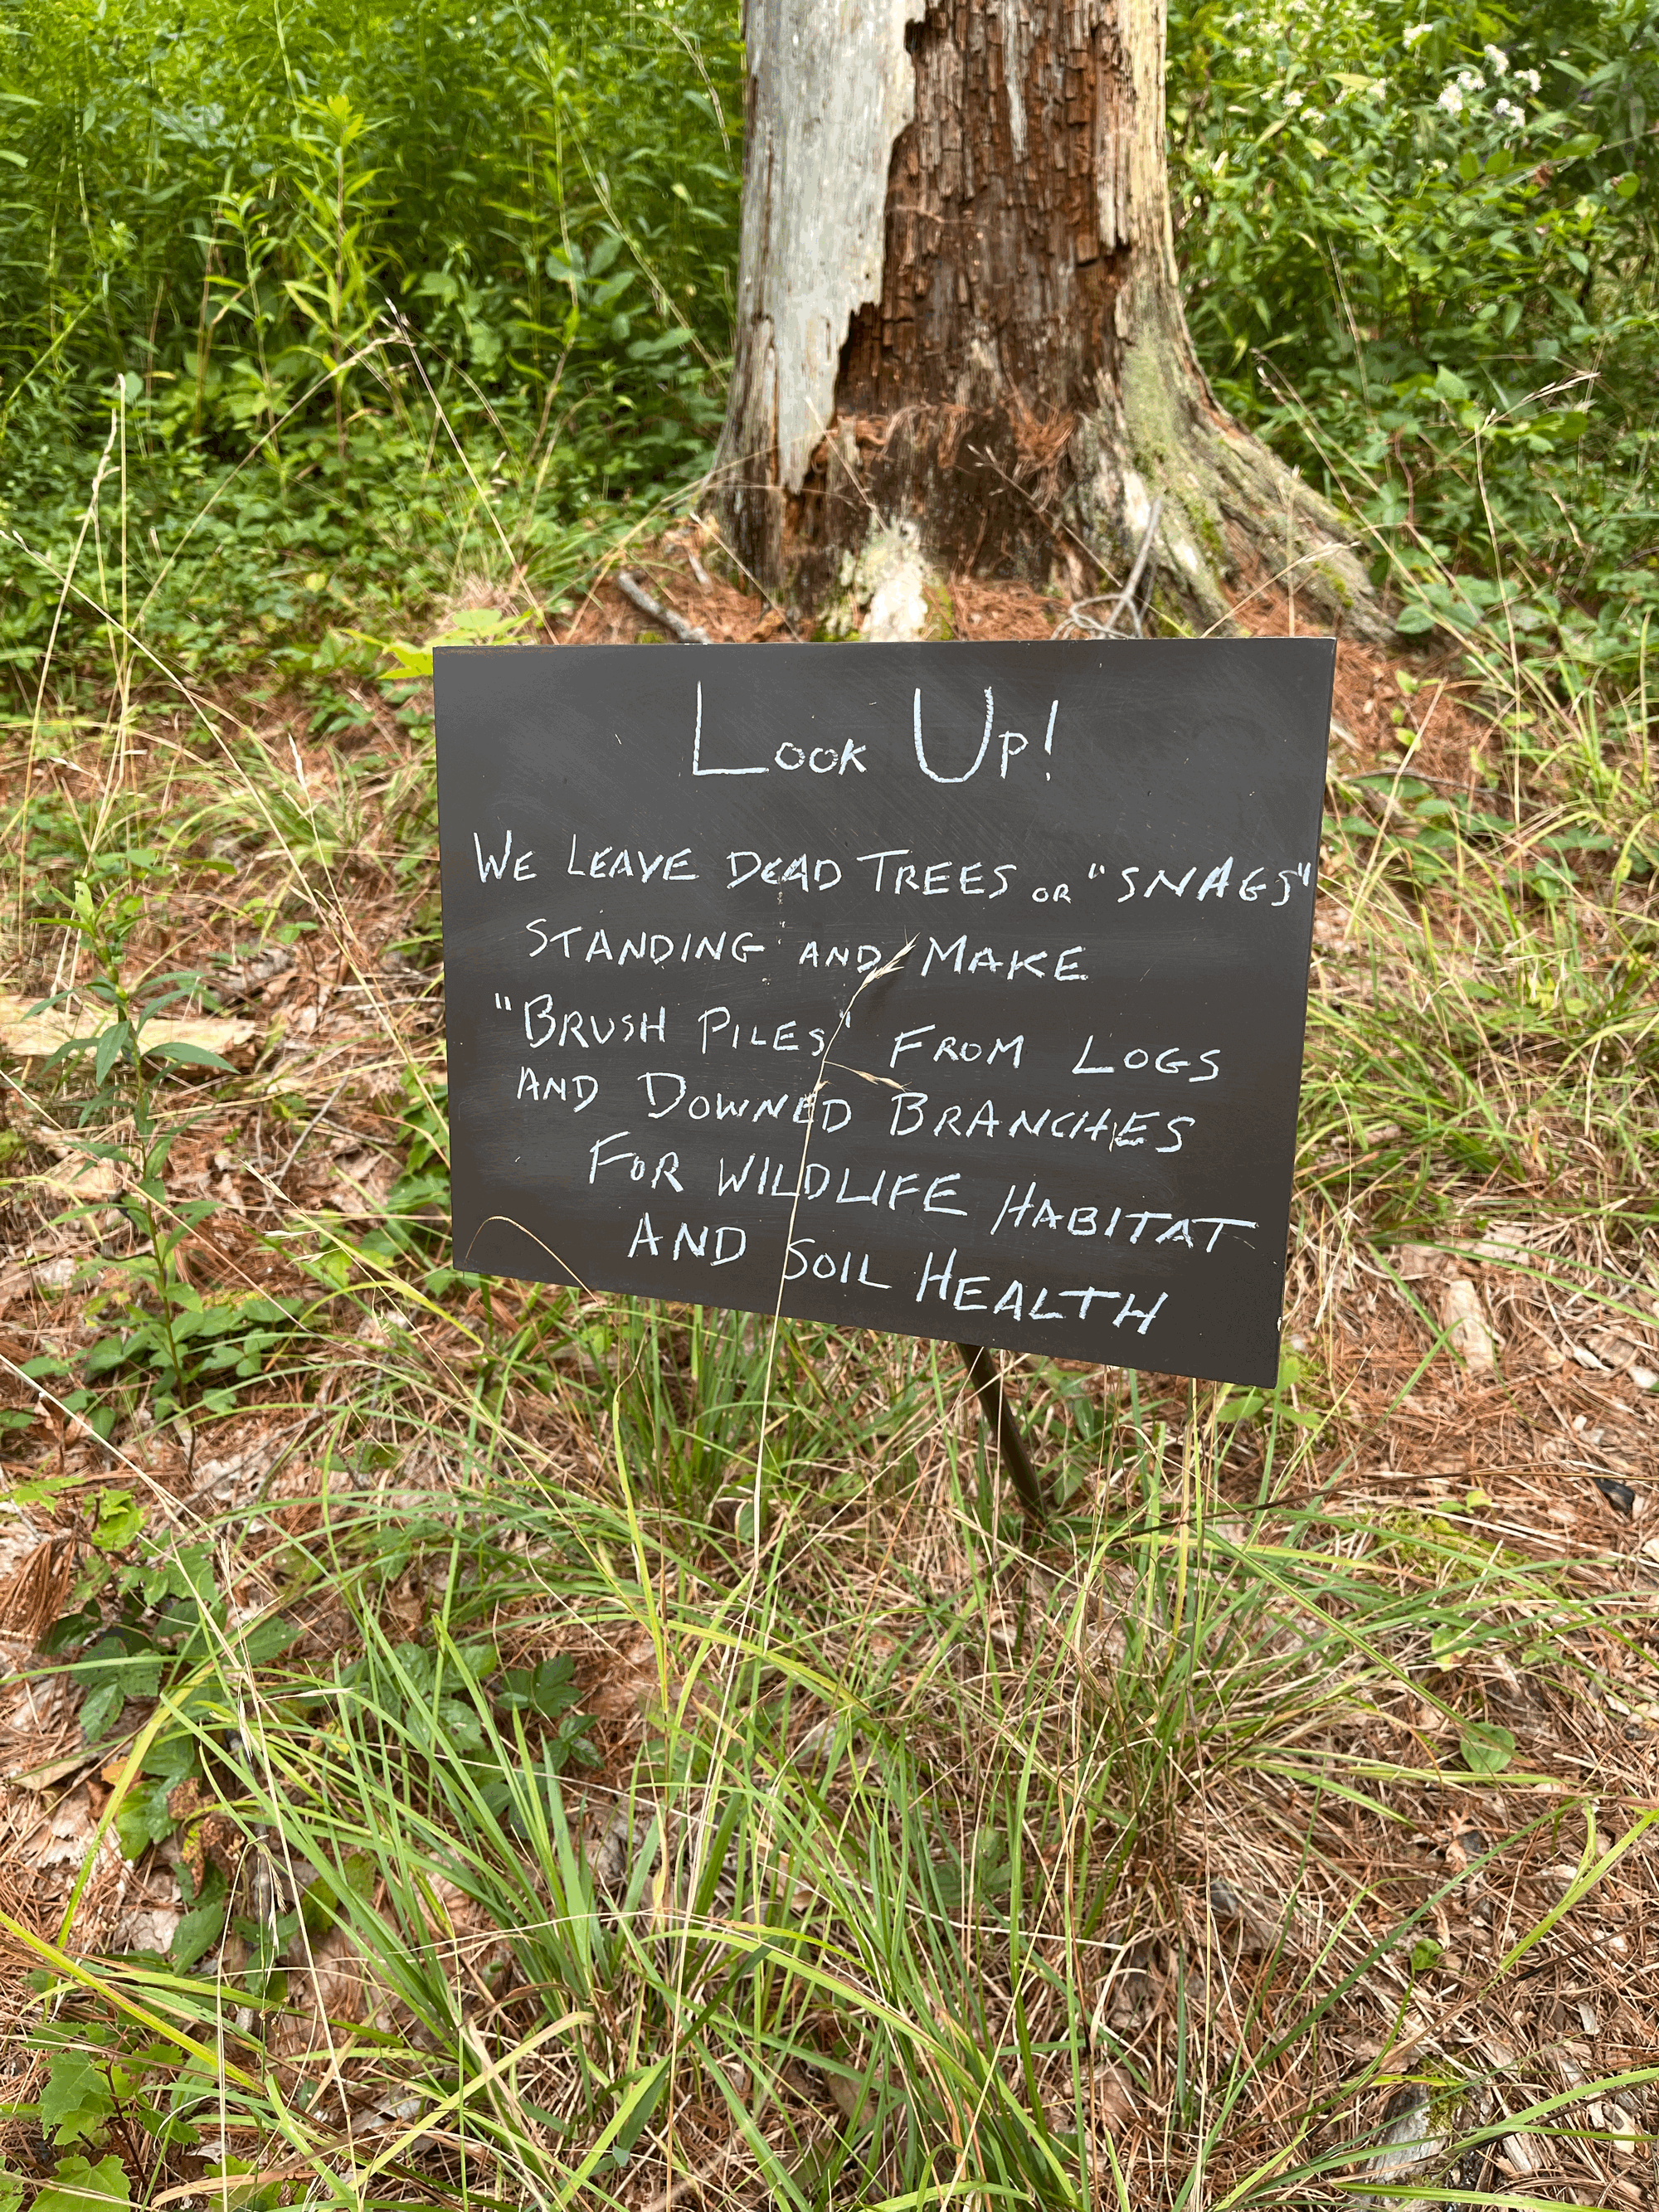 Look Up!
WE LEAVE DEAD TREES OR "SNAGS"
STANDING AND MAKE
"BRUSH PILES" FROM LOGS
AND DOWNED BRANCHES
FOR WILDLIFE HABITAT
AND SOIL HEALTH